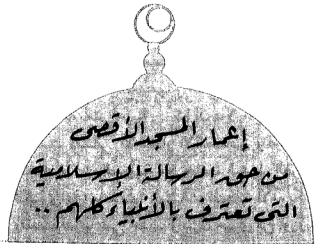 إعمار المسجد الأقصى
من حق الرسالة الإسلامية
التى تعترف بالأنبياء كلهم ..